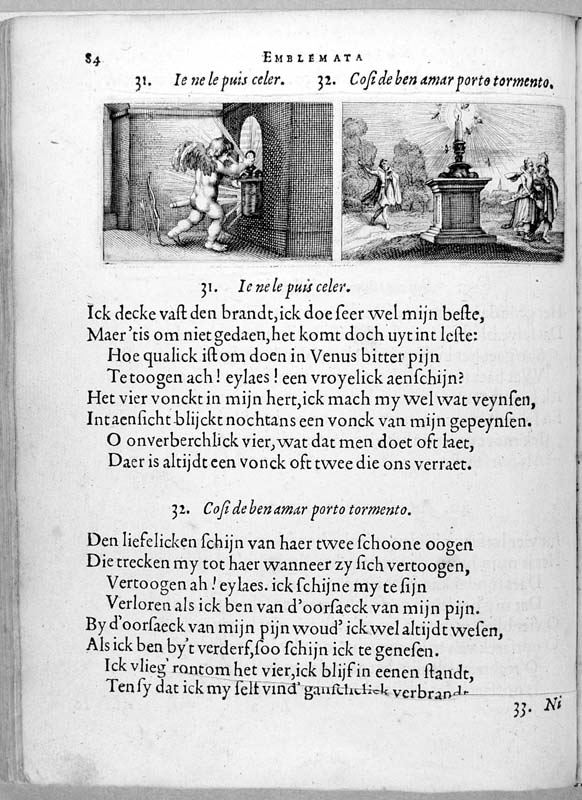 84 EMBLEMATA
31. Ie ne le puis celer. 32. Coſi de ben amar porto tormento.
31. Ie ne le puis celer.
Ick decke vaſt den brandt, ick doe ſeer wel mijn beſte,
Maer 'tis om niet gedaen, het komt doch uyt int leſte:
Hoe qualick iſt om doen in Venus bitter pijn
Te toogen ach! eylaes! een vroyelick aenſchijn?
Het vier vonckt in mijn hert, ick mach my wel wat veynſen,
Int aenſicht blijckt nochtans een vonck van mijn gepeynſen.
O onverberchlick vier, wat dat men doet oft laet,
Daer is altijdt een vonck oft twee die ons verraet.
32. Coſi de ben amar porto tormento.
Den liefelicken ſchijn van haer twee ſchoone oogen
Die trecken my tot haer wanneer zy ſich vertoogen,
Vertoogen ah! eylaes. ick ſchijne my te ſijn
Verloren als ick ben van d'oorſaeck van mijn pijn.
By d'oorſaeck van mijn pijn woud' ick wel altijdt weſen,
Als ick ben by't verderf, ſoo ſchijn ick te geneſen.
Ick vlieg' rontom het vier, ick blijf in eenen ſtandt,
Ten ſy dat ick my ſelf vind' ganſchelick verbrandt
33. Ni